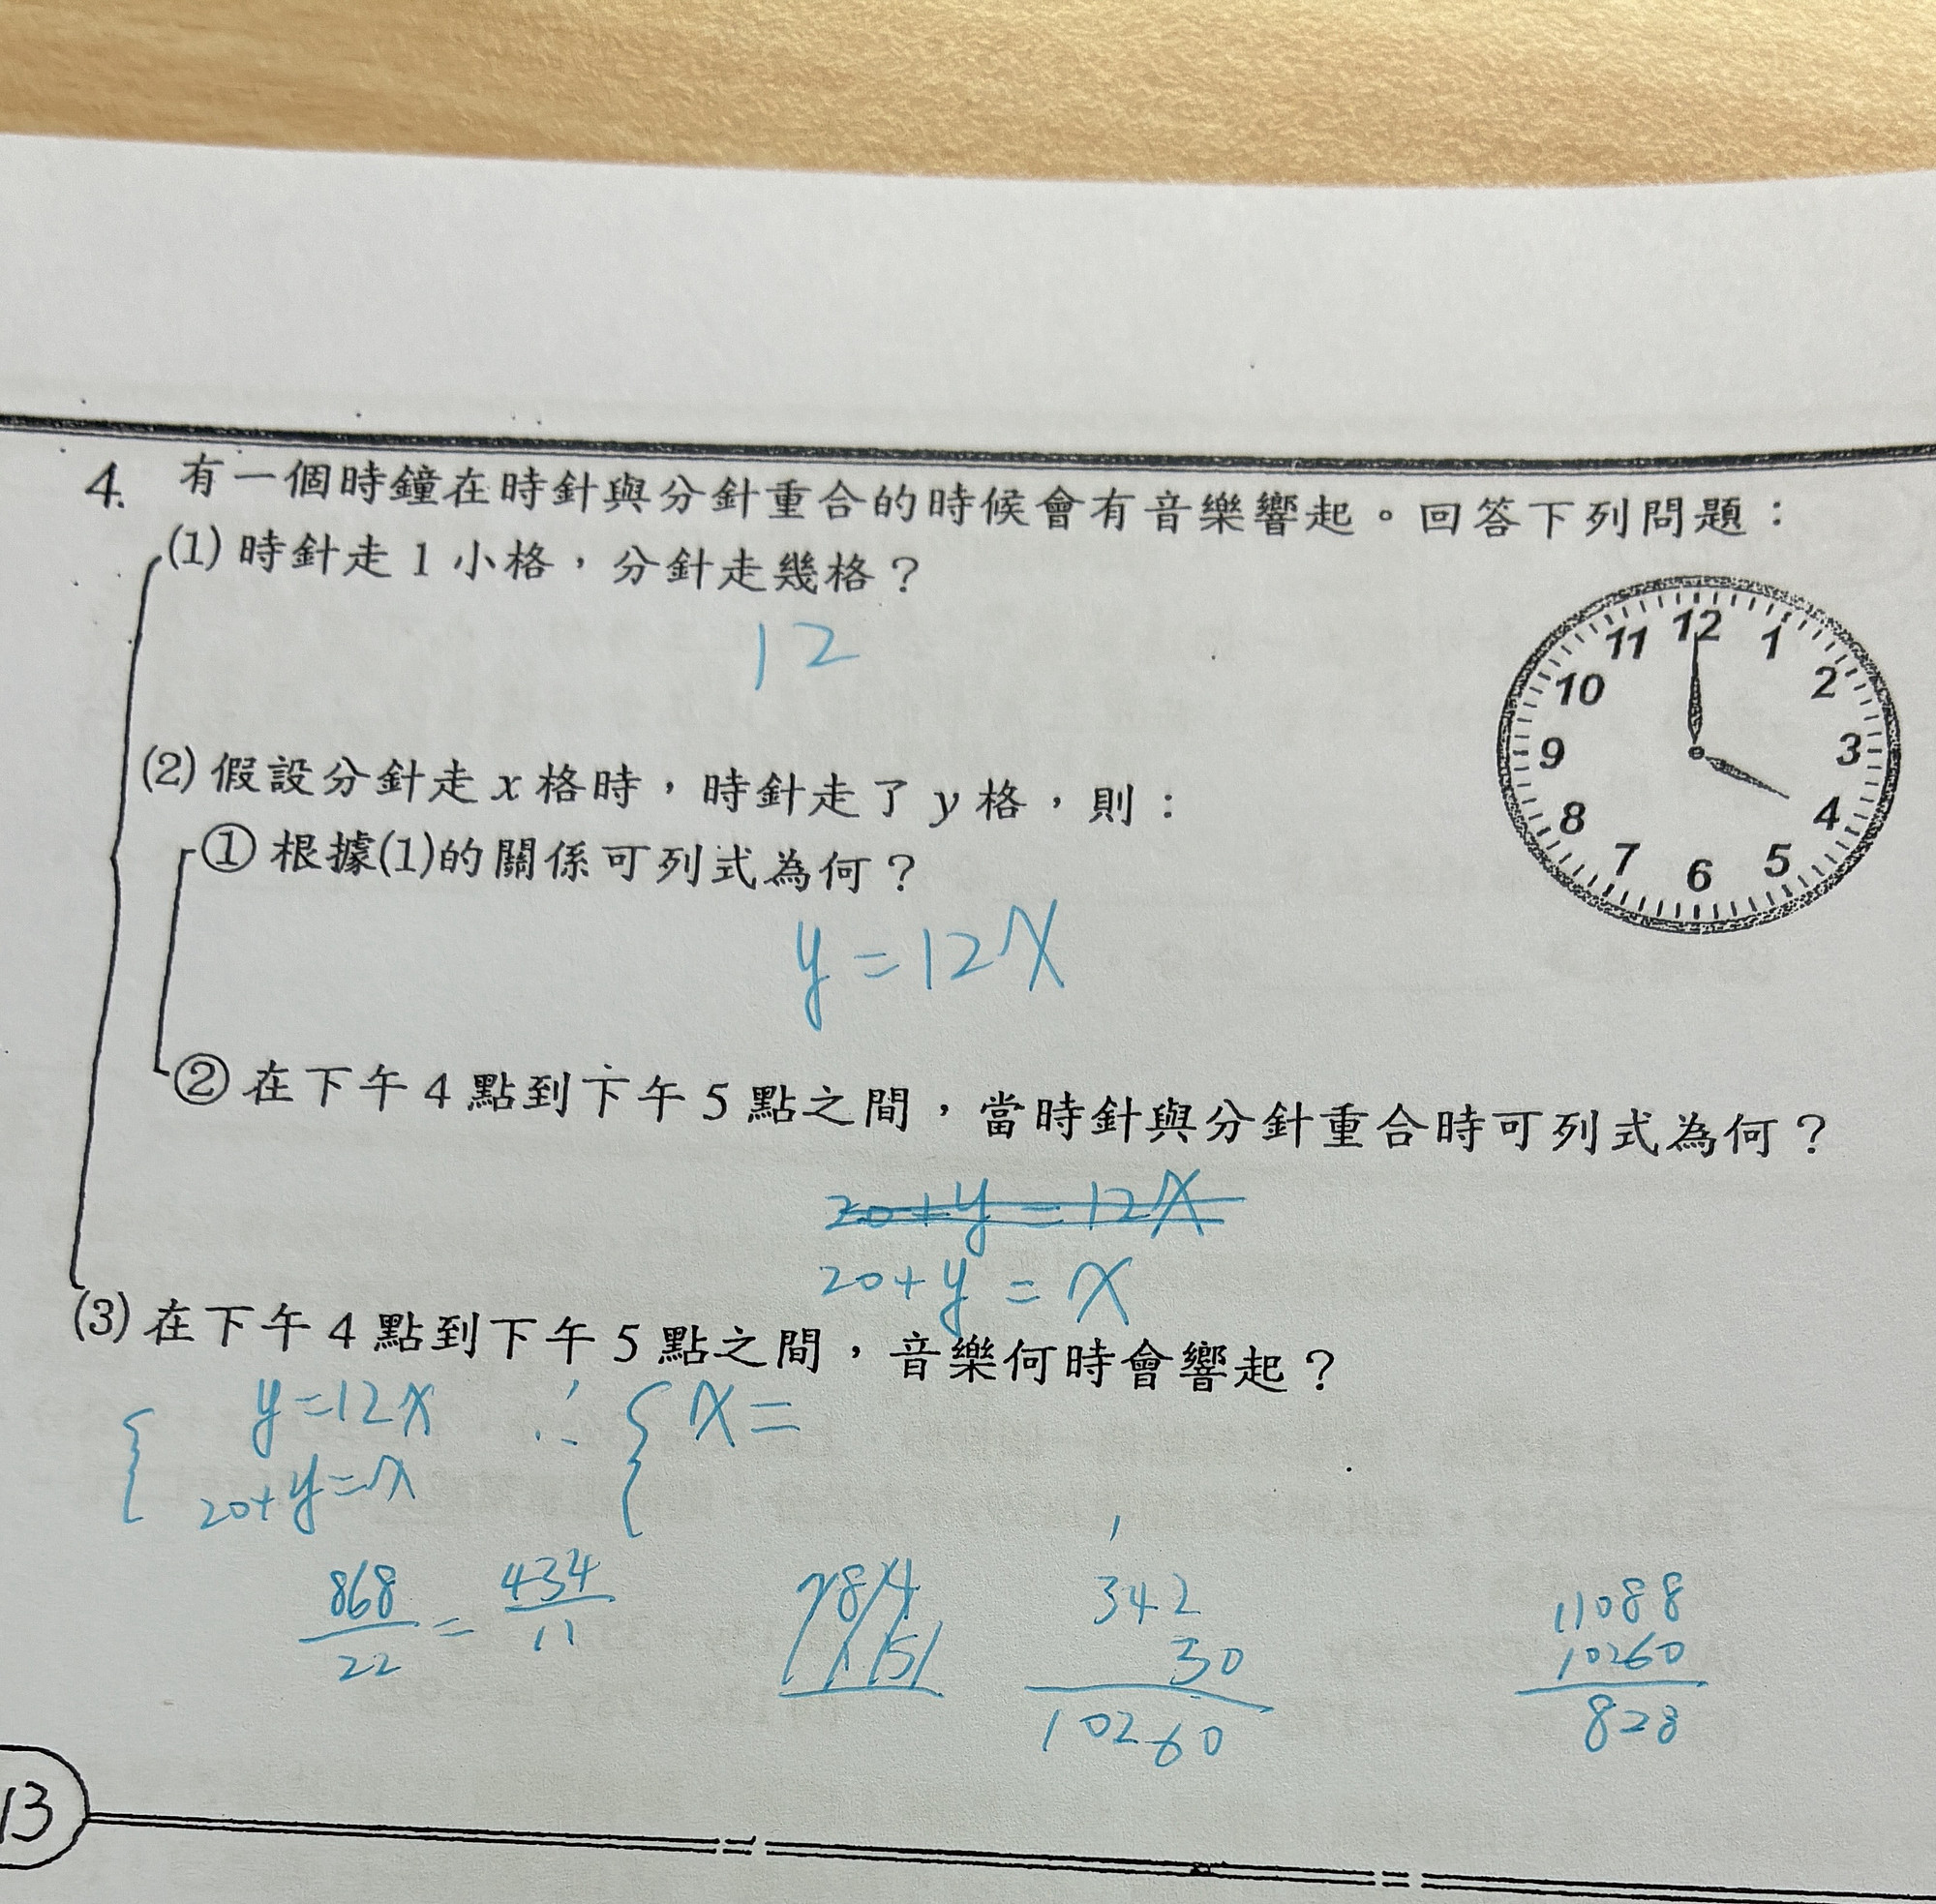 4. 有一個時鐘在時針與分針重合的時候會有音樂響起。回答下列問題：
(1) 時針走 1 小格，分針走幾格？
12
(2) 假設分針走 x 格時，時針走了 y 格，則：
① 根據(1)的關係可列式為何？
y=12x
② 在下午 4 點到下午 5 點之間，當時針與分針重合時可列式為何？
20+y=12x
20+y=x
(3) 在下午 4 點到下午 5 點之間，音樂何時會響起？
y=12x ∴ x=
20+y=x
868/22 = 434/11
342
30
10260
11088
10260
828
13
12 1 2 3 4 5 6 7 8 9 10 11